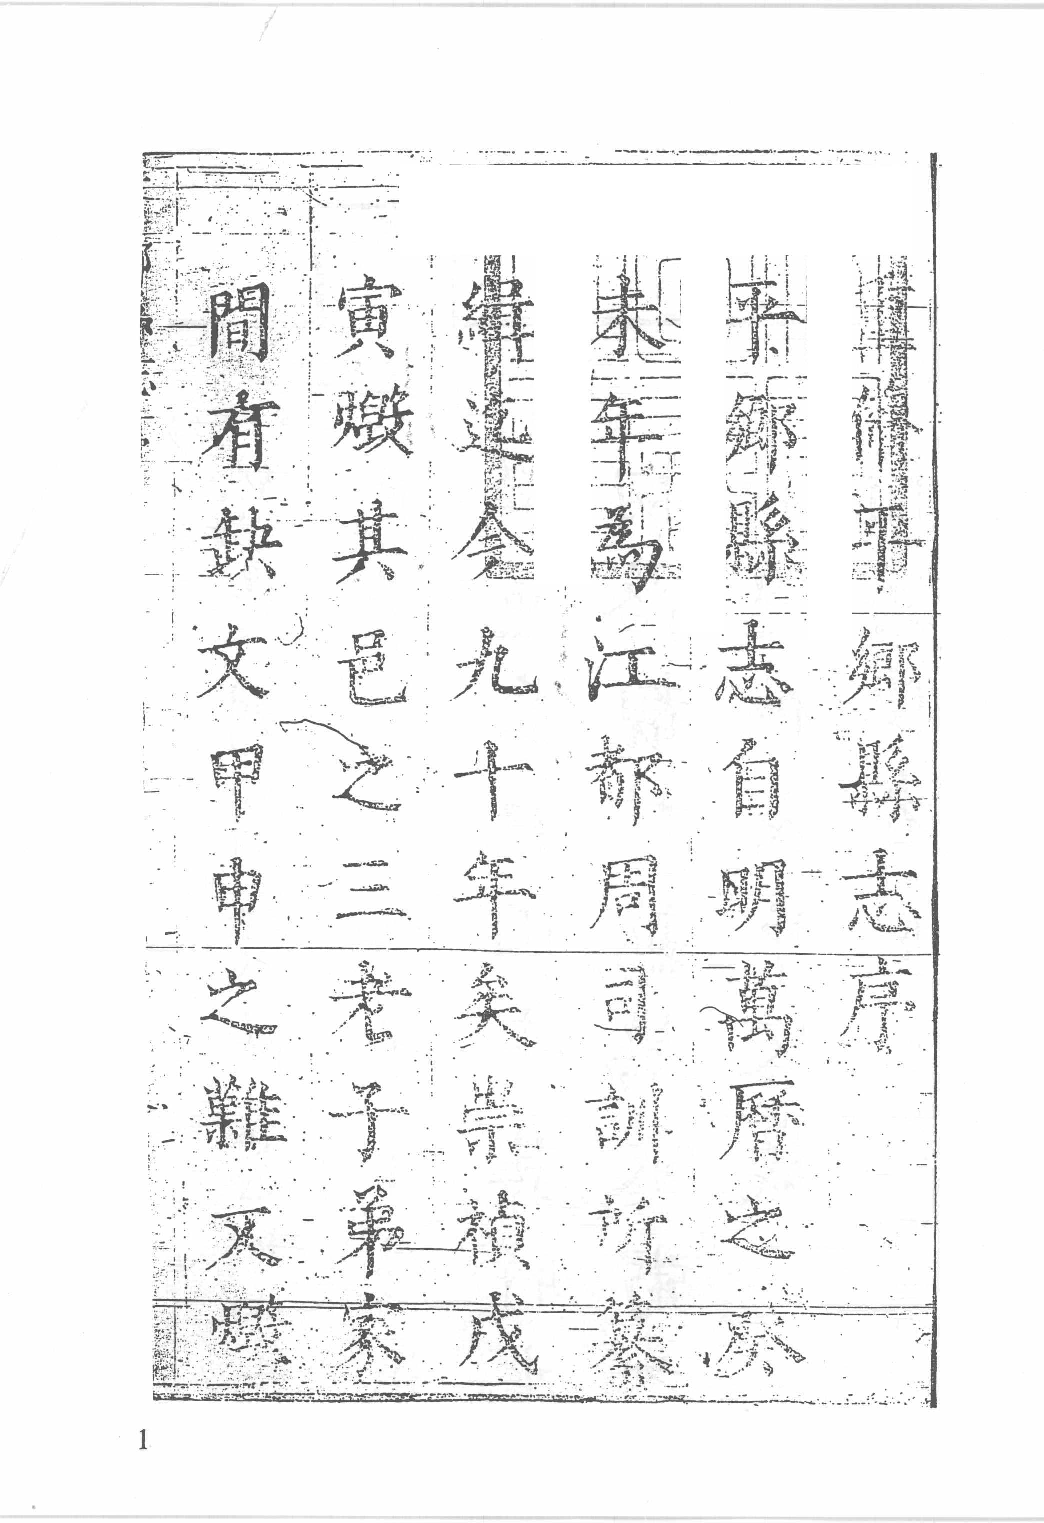 重修平鄉縣志序
平鄉縣志自明萬曆之癸
未年為江都周司訓所纂
緝迄今九十年矣崇禎戊
寅燬其邑之三老子弟家
間有缺文甲申之難又燬
1